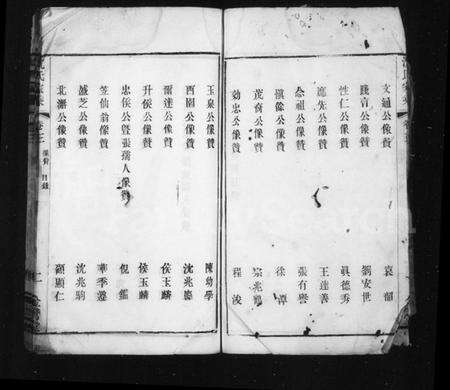 文通公像贊 袁韶
踐言公像贊 劉安世
性仁公像贊 眞德秀
應先公像贊 王達善
念祖公像贊 張有譽
慎餘公像贊 徐潭
茂裔公像贊 宗兆
効忠公像贊 程浚
玉泉公像贊 陳幼學
西園公像贊 沈兆
雷達公像贊 侯玉麟
升侯公像贊 侯玉麟
忠侯公暨張孺人像贊 倪鑑
笠仙翁像贊 華季
盛芝公像贊 沈兆駒
北灘公像贊 顧顯仁
像贊 目錄